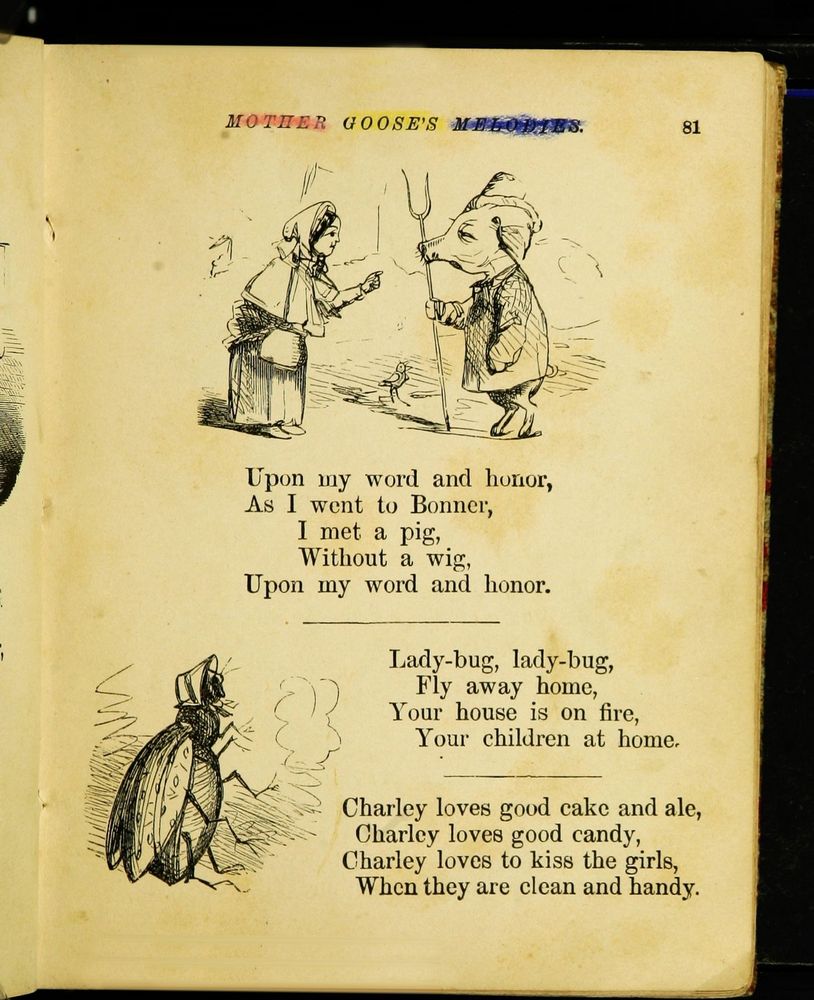 MOTHER GOOSE'S MELODIES. 81
Upon my word and honor,
As I went to Bonner,
I met a pig,
Without a wig,
Upon my word and honor.
Lady-bug, lady-bug,
Fly away home,
Your house is on fire,
Your children at home.
Charley loves good cake and ale,
Charley loves good candy,
Charley loves to kiss the girls,
When they are clean and handy.